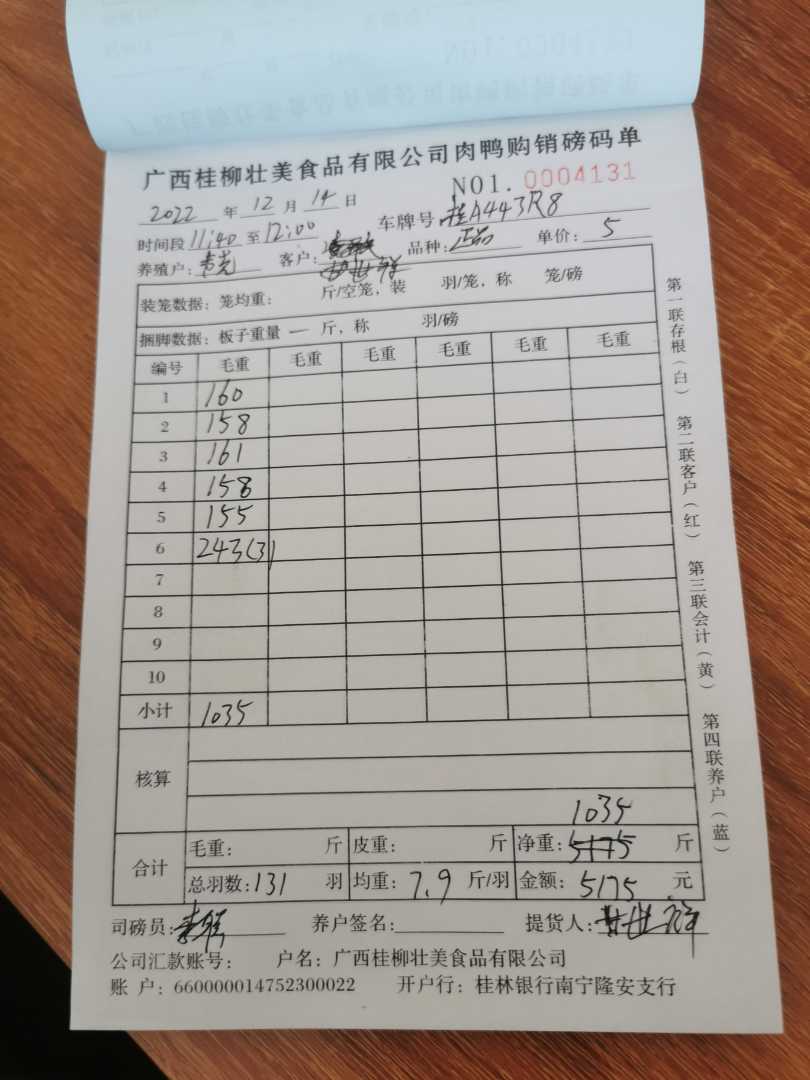 广西桂柳壮美食品有限公司肉鸭购销磅码单
NO1. 0004131
2022 年 12 月 14 日
车牌号 桂A443R8
时间段 11:40 至 12:00
养殖户: 客户: 品种: 正品 单价: 5
装笼数据: 笼均重: 斤/空笼, 装 羽/笼, 称 笼/磅
捆脚数据: 板子重量 — 斤, 称 羽/磅
编号 毛重 毛重 毛重 毛重 毛重 毛重
1 160
2 158
3 161
4 158
5 155
6 243(3)
7
8
9
10
小计 1035
核算
1035
合计 毛重: 斤 皮重: 斤 净重: 5175 斤
总羽数: 131 羽 均重: 7.9 斤/羽 金额: 5175 元
司磅员: 养户签名: 提货人:
公司汇款账号: 户名: 广西桂柳壮美食品有限公司
账 户: 660000014752300022 开户行: 桂林银行南宁隆安支行
第一联存根(白) 第二联客户(红) 第三联会计(黄) 第四联养户(蓝)